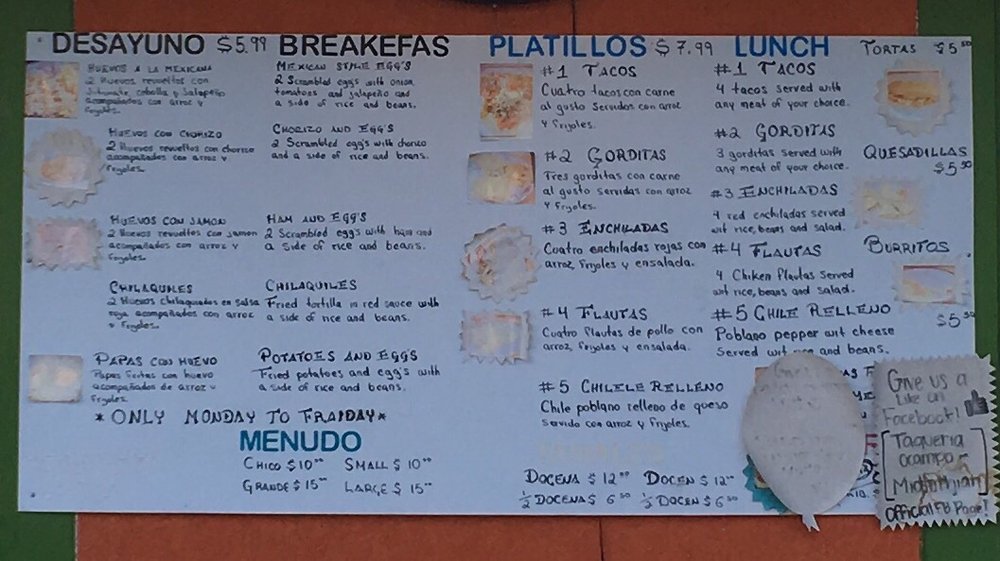 DESAYUNO $5.99 BREAKEFAS
HUEVOS A LA MEXICANA
2 Huevos revueltos con
Jitomate, cebolla y Jalapeño
acompañados con arroz y
frijoles.
HUEVOS CON CHORIZO
2 Huevos revueltos con chorizo
acompañados con arroz y
frijoles.
HUEVOS CON JAMON
2 Huevos revueltos con jamon
acompañados con arroz y
frijoles.
CHILAQUILES
2 Huevos chilaquilados en salsa
roja acompañados con arroz
y frijoles.
PAPAS CON HUEVO
Papas fritas con huevo
acompañados de arroz y
frijoles.
MEXICAN STYLE EGG'S
2 Scrambled egg's with onion,
tomatoes and jalapeño and
a side of rice and beans.
CHORIZO AND EGG'S
2 Scrambled egg's with chorico
and a side of rice and beans.
HAM AND EGG'S
2 Scrambled egg's with ham and
a side of rice and beans.
CHILAQUILES
Fried tortilla in red sauce with
a side of rice and beans.
POTATOES AND EGG'S
Fried potatoes and egg's with
a side of rice and beans.
*ONLY MONDAY TO FRAIDAY*
MENUDO
CHICO $10.00 SMALL $10.00
GRANDE $15.00 LARGE $15.00
PLATILLOS $7.99 LUNCH
#1 TACOS
Cuatro tacos con carne
al gusto Servidos con arroz
y frijoles.
#2 GORDITAS
Tres gorditas con carne
al gusto servidas con arroz
y frijoles.
#3 ENCHILADAS
Cuatro enchiladas rojas con
arroz, frijoles y ensalada.
#4 FLAUTAS
Cuatro flautas de pollo con
arroz, frijoles y ensalada.
#5 CHILELE RELLENO
Chile poblano relleno de queso
Servido con arroz y frijoles.
DOCENA $12.00 DOCEN $12.00
1/2 DOCENA $6.50 1/2 DOCEN $6.50
#1 TACOS
4 tacos served with
any meat of your choice.
#2 GORDITAS
3 gorditas served with
any meat of your choice.
#3 ENCHILADAS
4 red enchiladas served
wit rice, beans and salad.
#4 FLAUTAS
4 Chiken flautas served
wit rice, beans and salad.
#5 CHILE RELLENO
Poblano pepper wit cheese
Served wit and beans.
TORTAS $5.50
QUESADILLAS
$5.50
BURRITOS
$5.50
Give us a
Like on
Facebook!
Taqueria
Ocampo
Michoacan
Official FB Page!